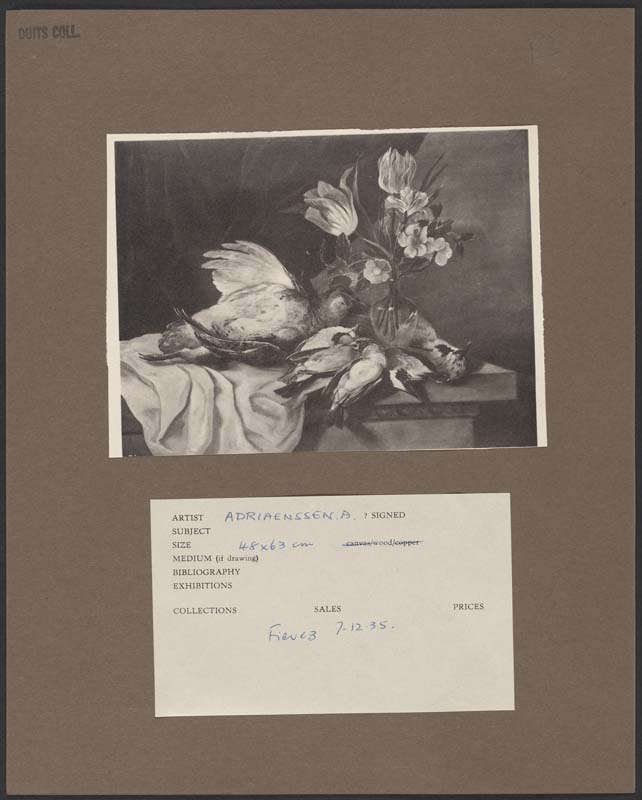 DUITS COLL.
ARTIST ADRIAENSSEN. A. ? SIGNED
SUBJECT
SIZE 48 x 63 cm canvas/wood/copper
MEDIUM (if drawing)
BIBLIOGRAPHY
EXHIBITIONS
COLLECTIONS SALES PRICES
Fievez 7-12-35.